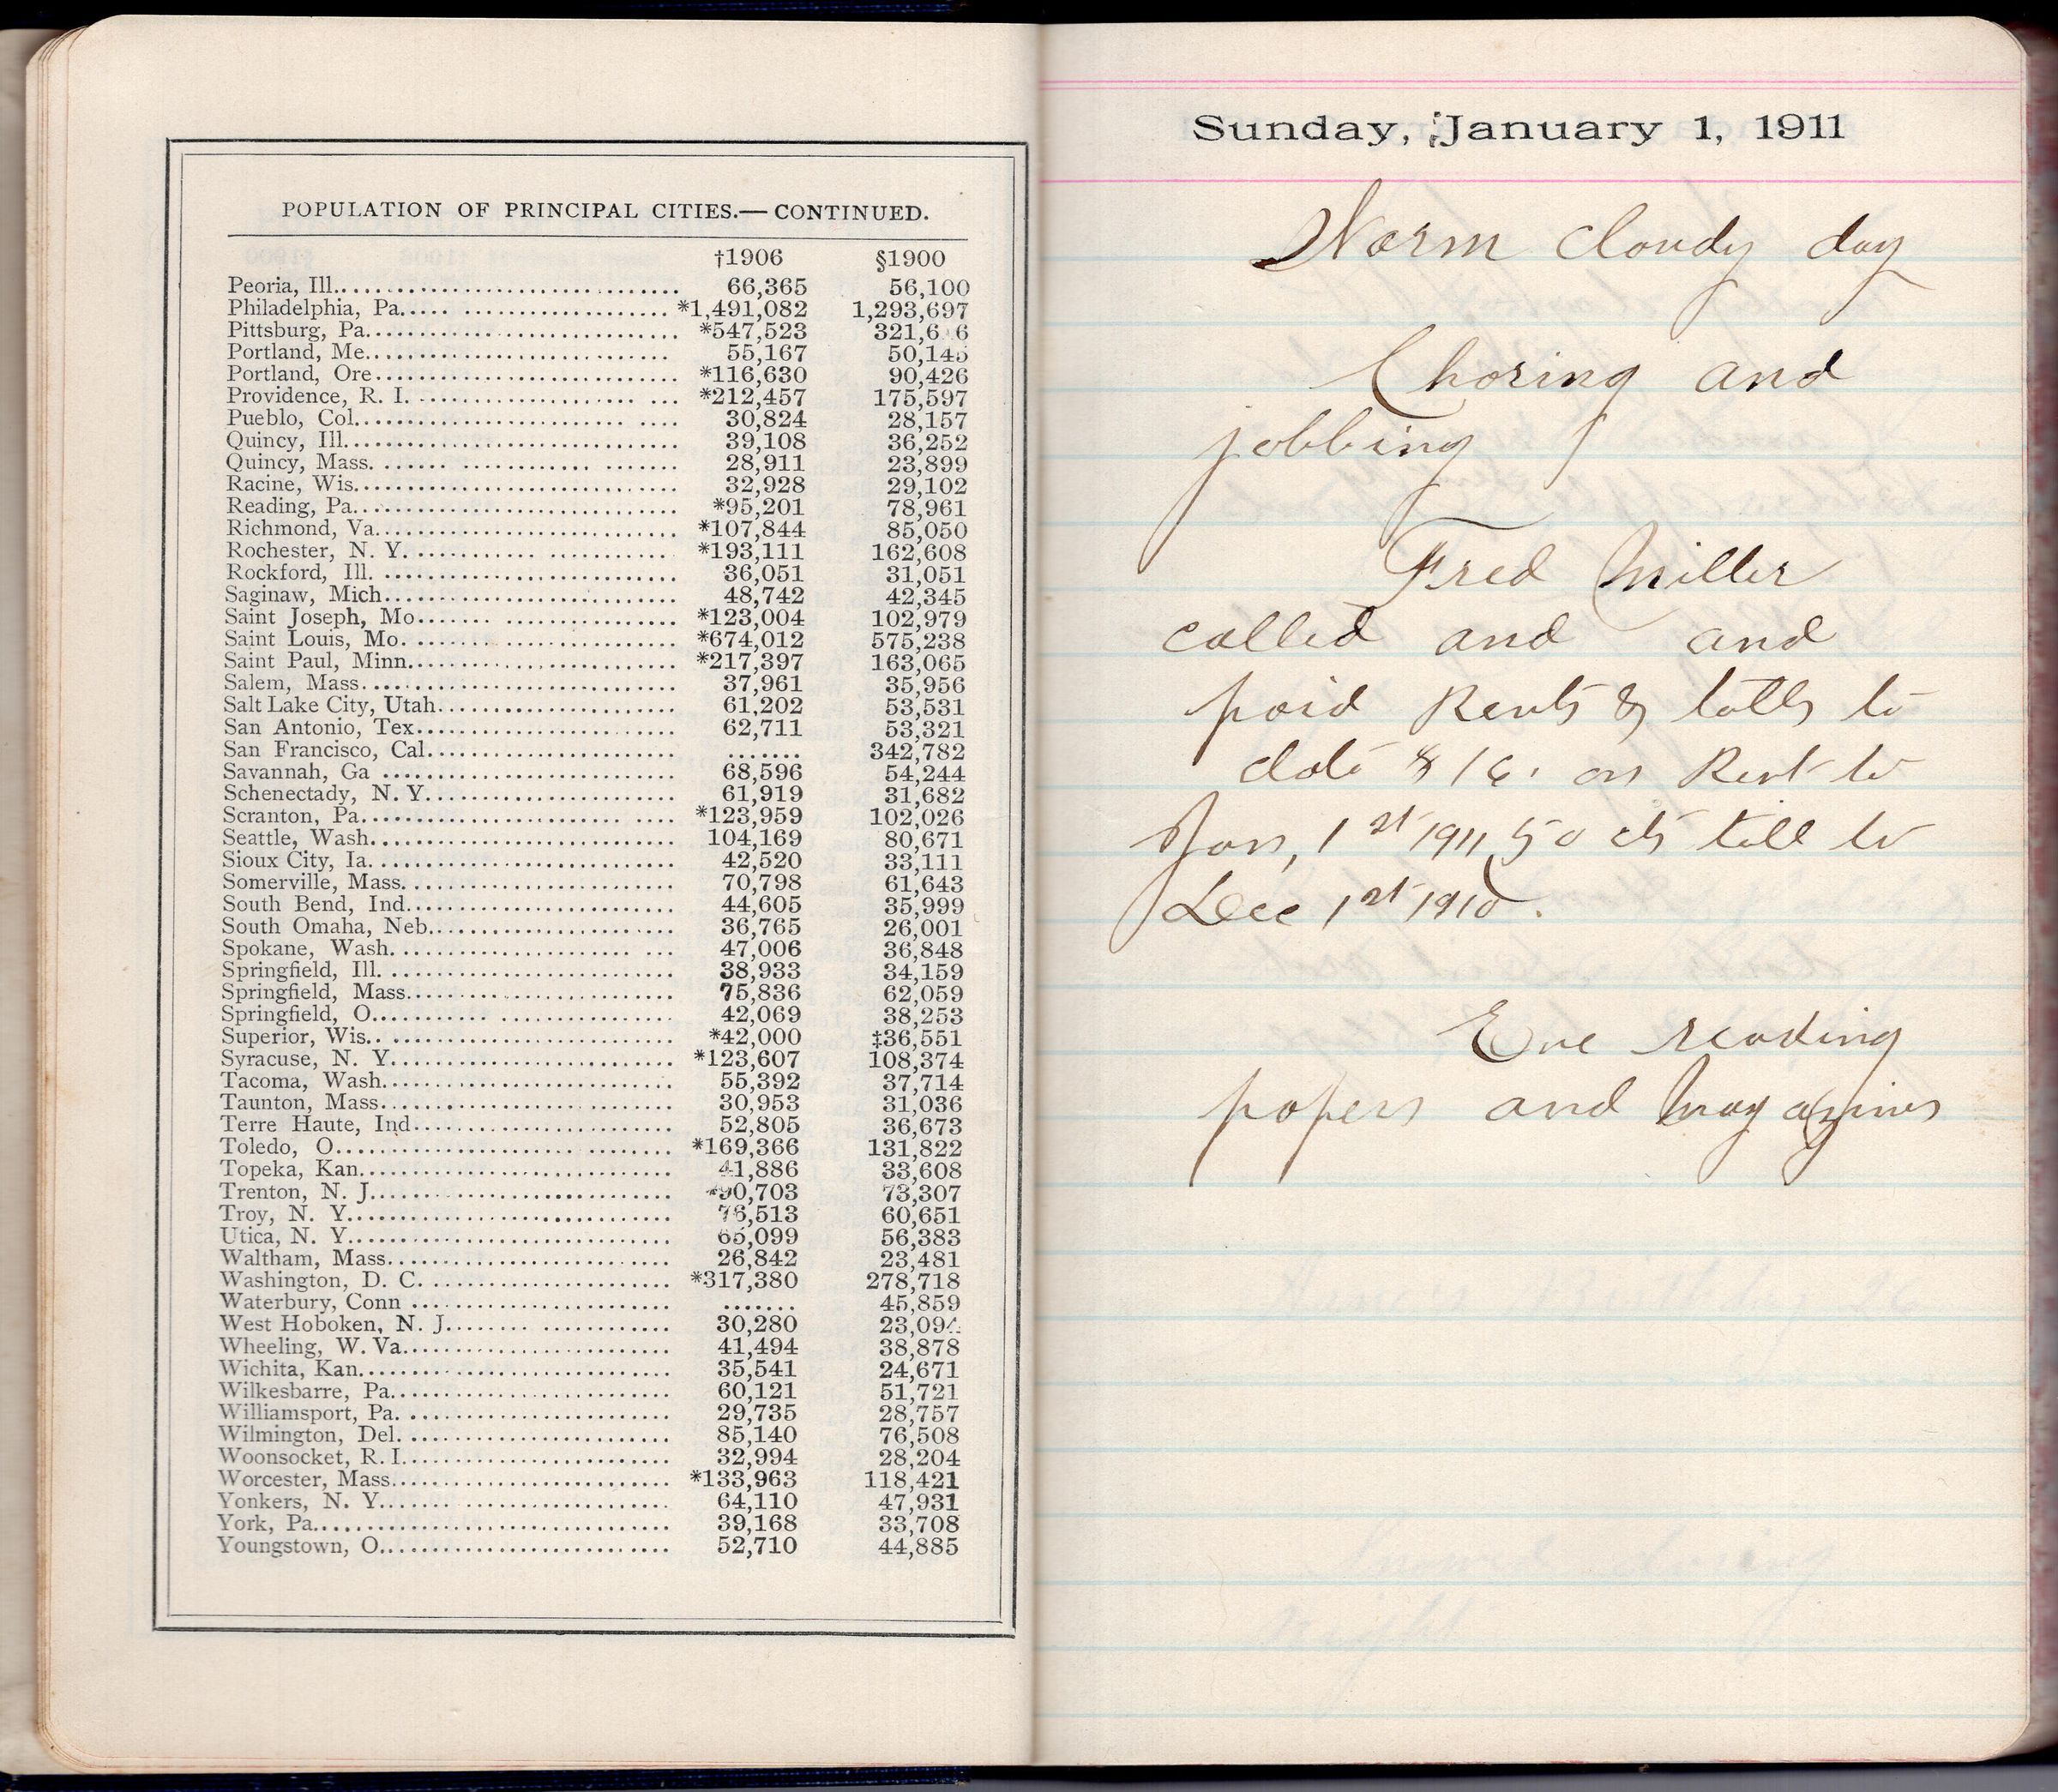 POPULATION OF PRINCIPAL CITIES.— CONTINUED.
†1906 §1900
Peoria, Ill. 66,365 56,100
Philadelphia, Pa. *1,491,082 1,293,697
Pittsburg, Pa. *547,523 321,6 6
Portland, Me. 55,167 50,145
Portland, Ore *116,630 90,426
Providence, R. I. *212,457 175,597
Pueblo, Col. 30,824 28,157
Quincy, Ill. 39,108 36,252
Quincy, Mass. 28,911 23,899
Racine, Wis. 32,928 29,102
Reading, Pa. *95,201 78,961
Richmond, Va. *107,844 85,050
Rochester, N. Y. *193,111 162,608
Rockford, Ill. 36,051 31,051
Saginaw, Mich. 48,742 42,345
Saint Joseph, Mo. *123,004 102,979
Saint Louis, Mo. *674,012 575,238
Saint Paul, Minn. *217,397 163,065
Salem, Mass. 37,961 35,956
Salt Lake City, Utah. 61,202 53,531
San Antonio, Tex. 62,711 53,321
San Francisco, Cal. ....... 342,782
Savannah, Ga 68,596 54,244
Schenectady, N. Y. 61,919 31,682
Scranton, Pa. *123,959 102,026
Seattle, Wash. 104,169 80,671
Sioux City, Ia. 42,520 33,111
Somerville, Mass. 70,798 61,643
South Bend, Ind. 44,605 35,999
South Omaha, Neb. 36,765 26,001
Spokane, Wash. 47,006 36,848
Springfield, Ill. 38,933 34,159
Springfield, Mass. 75,836 62,059
Springfield, O. 42,069 38,253
Superior, Wis. *42,000 ‡36,551
Syracuse, N. Y. *123,607 108,374
Tacoma, Wash. 55,392 37,714
Taunton, Mass. 30,953 31,036
Terre Haute, Ind. 52,805 36,673
Toledo, O. *169,366 131,822
Topeka, Kan. 41,886 33,608
Trenton, N. J. *90,703 73,307
Troy, N. Y. 76,513 60,651
Utica, N. Y. 65,099 56,383
Waltham, Mass. 26,842 23,481
Washington, D. C. *317,380 278,718
Waterbury, Conn ....... 45,859
West Hoboken, N. J. 30,280 23,094
Wheeling, W. Va. 41,494 38,878
Wichita, Kan. 35,541 24,671
Wilkesbarre, Pa. 60,121 51,721
Williamsport, Pa. 29,735 28,757
Wilmington, Del. 85,140 76,508
Woonsocket, R. I. 32,994 28,204
Worcester, Mass. *133,963 118,421
Yonkers, N. Y. 64,110 47,931
York, Pa. 39,168 33,708
Youngstown, O. 52,710 44,885
Sunday, January 1, 1911
Warm cloudy day
Choring and
jobbing
Fred Miller
called and and
paid Rents & tolls to
date $16. on Rent to
Jan, 1st 1911 50 cts toll to
Dec 1st 1910.
Eve reading
papers and magazines